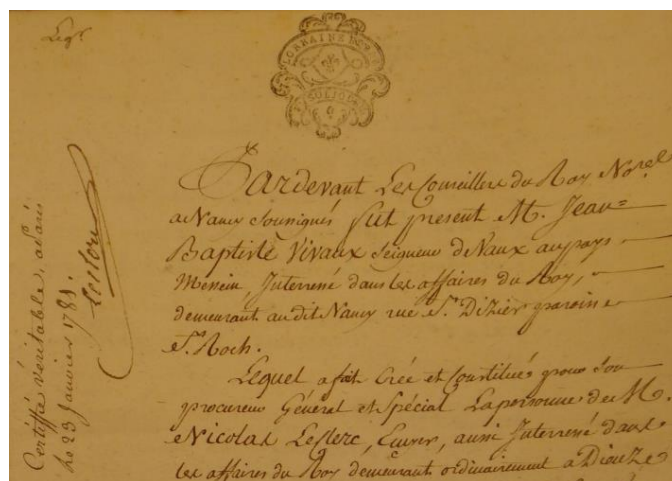 Certiffié véritable, a Paris
le 23 Janvier 1789.
LORRAINE
Pardevant Les Conseillers du Roy No.res
a Nancy soussignés fut present M. Jean=
Baptiste Vivaux Seigneur de Vaux au pays
Messin, Interressé dans les affaires du Roy,
demeurant audit Nancy rue St. Dizier paroisse
St. Roch.
Lequel a fait Créé et Constitué pour Son
procureur Général et Spécial La personne de M.
Nicolas Leclerc, Ecuyer, aussi Interressé dans
les affaires du Roy demeurant ordinairement a Dieuze